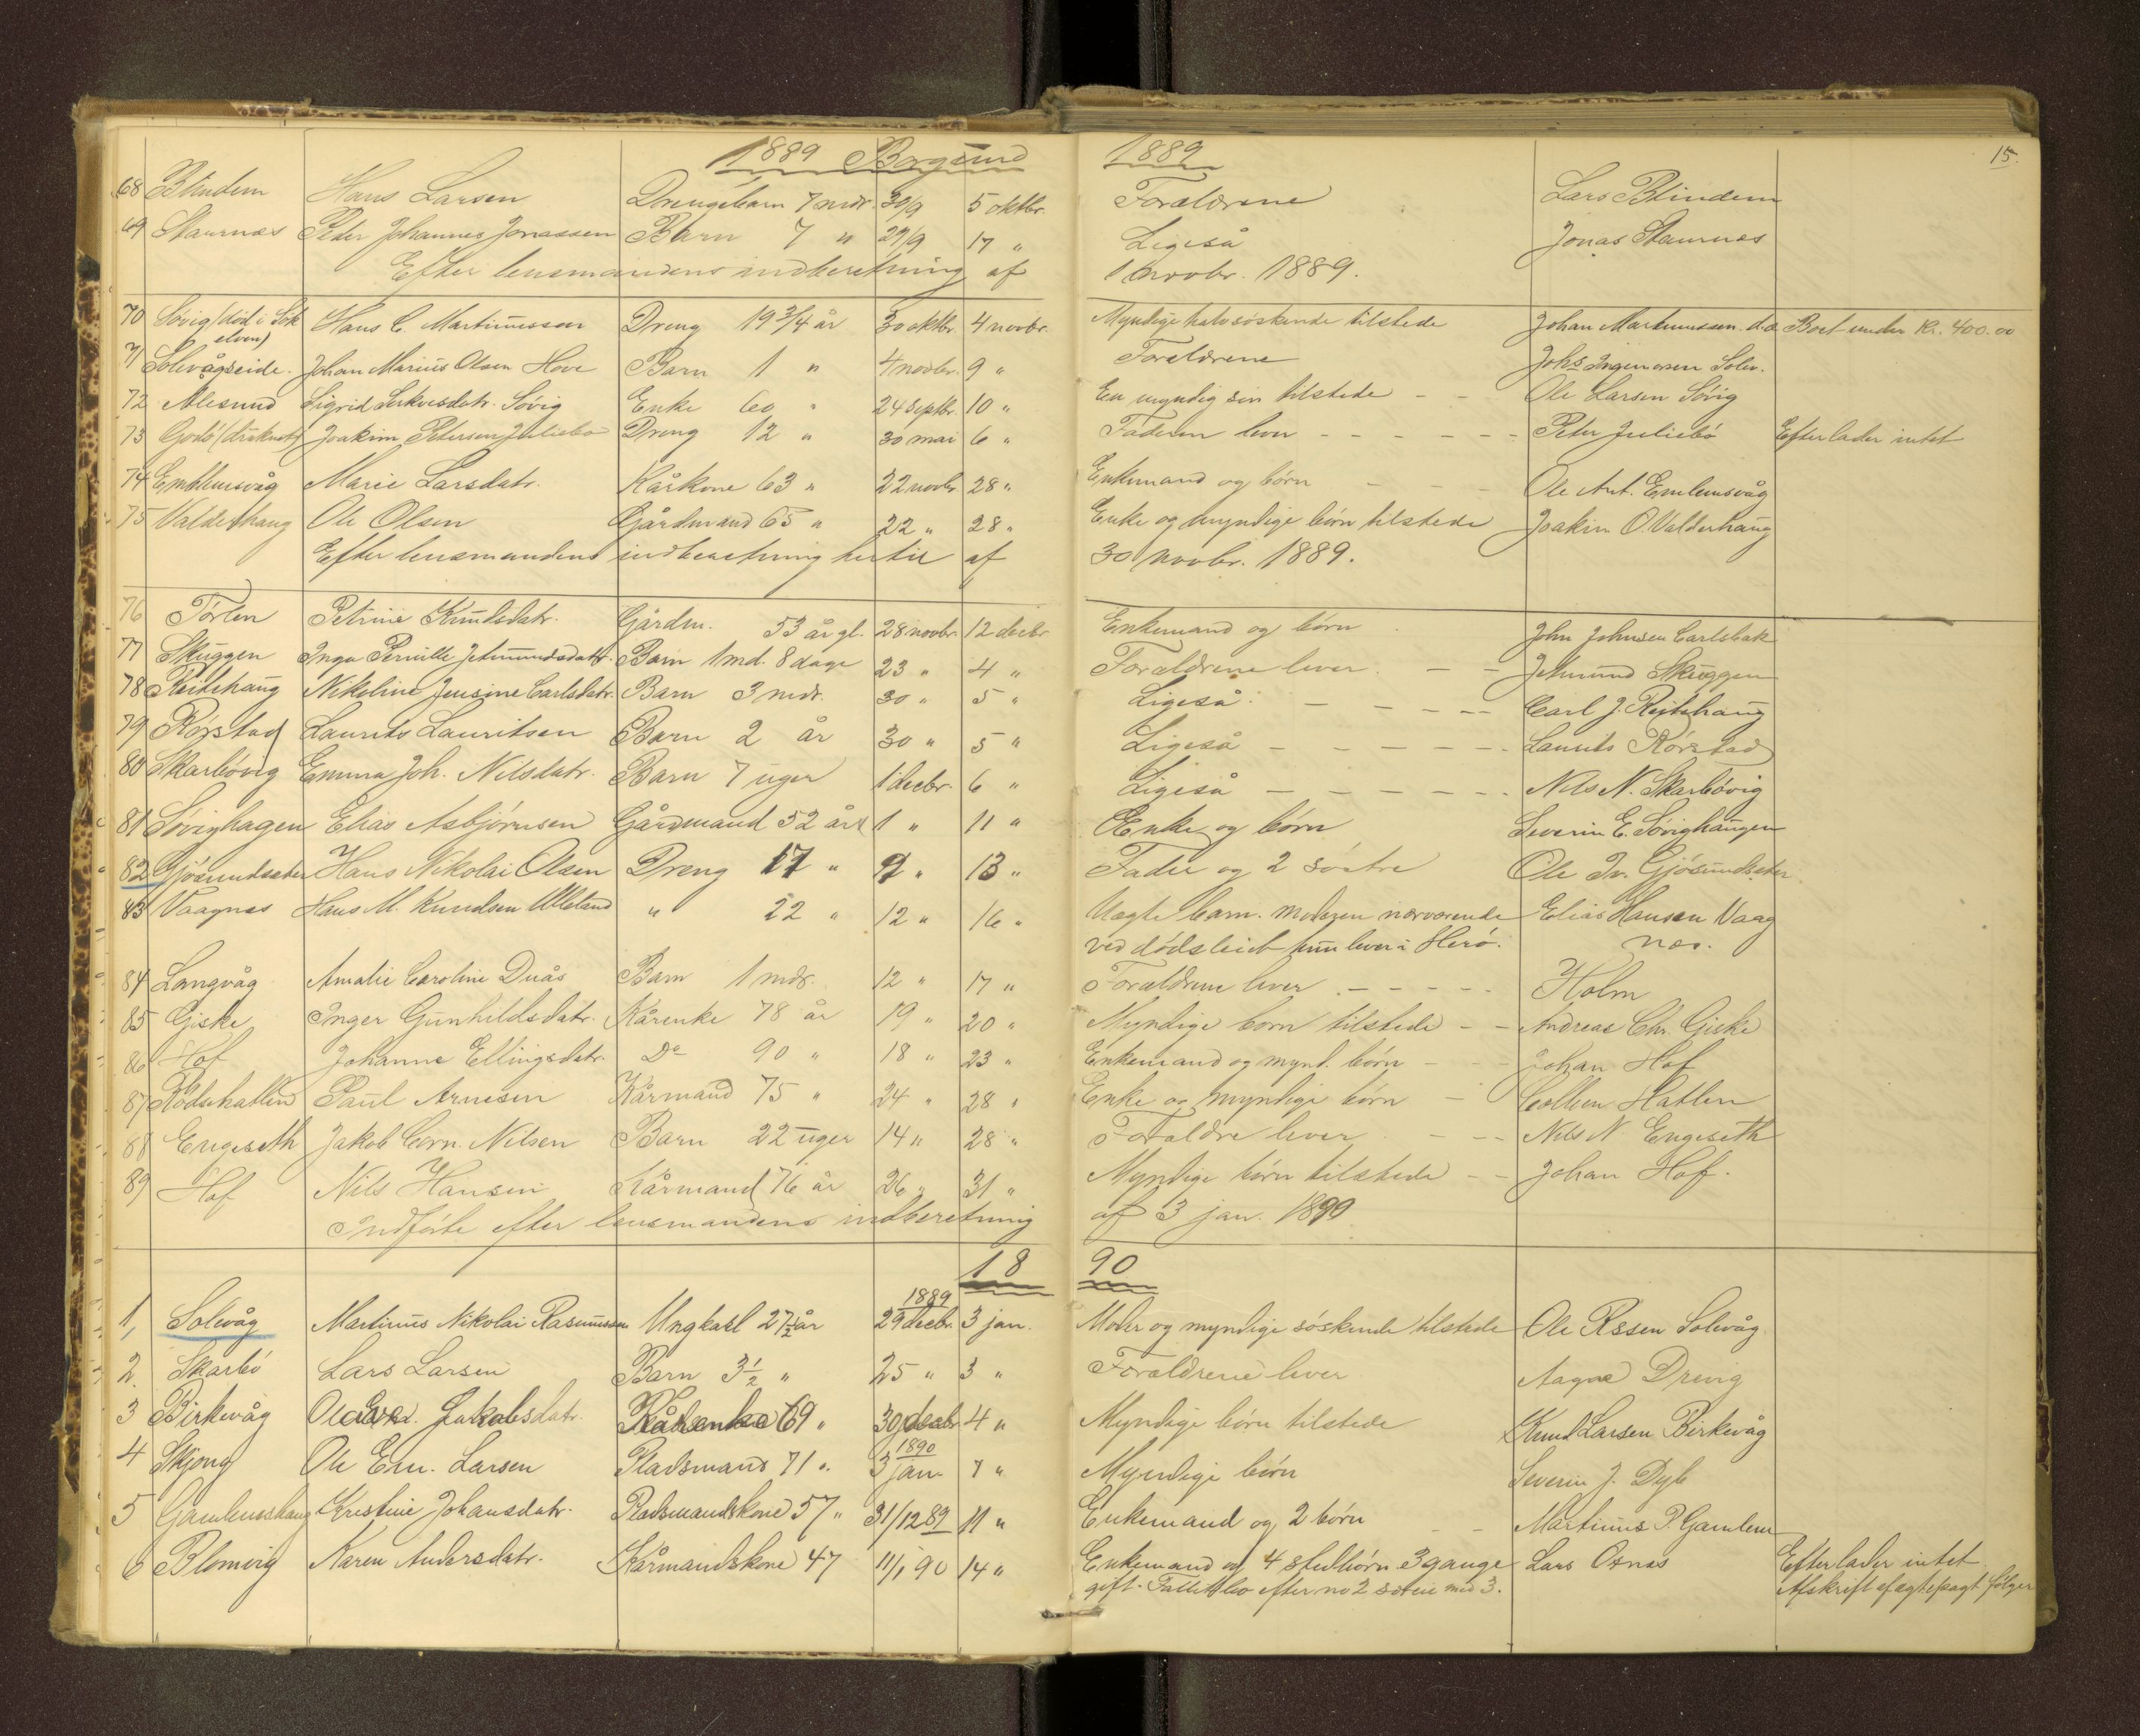 1889 Borgund 1889 15.
68 Blindem Hans Larsen Drengebarn 7 mdr. 30/9 5 oktbr. Forældrene Lars Blindem
69 Staurnæs Peder Johannes Jonassen Barn 7 " 27/9 17 " Ligeså Jonas Staurnæs
Efter lensmandens indberetning af 1 novbr. 1889.
70 Søvig (død i Søk Hans C. Martinussen Dreng 19 3/4 år 30 oktbr. 4 novbr. Myndige halvsøskende tilstede Johan Martinussen d.o. Boet under Kr. 400.00
elven)
71 Solevågseide. Johan Marius Olsen Hove Barn 1 " 4 novbr. 9 " Forældrene Johs Solev.
72 Alesund Sigrid Søvig Enke 60 " 24 septbr. 10 " En myndig søn tilstede - - Ole Larsen Søvig
73 Godø (druknet) Joakim Petersen Juliebø Dreng 12 " 30 mai 6 " Faderen lever - - - - - - Peter Juliebø Efterlader intet
74 Emblemsvåg Marie Larsdatr. Kårkone 63 " 22 novbr. 28 " Enkemand og børn - - - Ole Ant. Emlemsvåg
75 Valderhaug Ole Olsen Gårdmand 65 " 22 " 28 " Enke og myndige børn tilstede Joakim O. Valderhaug
Efter lensmandens indberetning hertil af 30 novbr. 1889.
76 Tørlen Petrine Knudsdatr. Gårdm. 53 år gl. 28 novbr. 12 decbr. Enkemand og børn John Johnsen Carlsbak
77 Skuggen Inga Pernille Jetmundsdatr. Barn 1 md. 8 dage 23 " 4 " Forældrene lever - - Jetmund Skuggen
78 Reitehaug Nikoline Jensine Carlsdatr. Barn 3 mdr. 30 " 5 " Ligeså - - - - - Carl J. Reitehaug
79 Rørstad Laurits Lauritsen Barn 2 år 30 " 5 " Ligeså - - - - - - Laurits Rørstad
80 Skarbøvig Emma Joh. Nilsdatr. Barn 7 uger 1 decbr. 6 " Ligeså - - - - - - Nils N. Skarbøvig
81 Søvighagen Elias Asbjørnsen Gårdmand 52 år 1 " 11 " Enke og børn Severin E. Søvighaugen
82 Gjøsundsæter Hans Nikolai Olsen Dreng 17 " 9 " 13 " Fader og 2 søstre Ole Iv. Gjøsundsæter
83 Vaagnæs Hans M. Knudsen Ulleland " 22 " 12 " 16 " Uægte barn. moderen nærværende Elias Hansen Vaag
ved dødsleiet hun lever i Herø. næs.
84 Langvåg Amalie Caroline Duås Barn 1 mdr. 12 " 17 " Forældrene lever - - - - - Holm
85 Giske Inger Gunhildsdatr. Kårenke 78 år 19 " 20 " Myndige børn tilstede - - Andreas Chr. Giske
86 Hof Johanne Ellingsdatr. Do 90 " 18 " 23 " Enkemand og mynd. børn - - - Johan Hof
87 Rødsehatlen Paul Arnesen Kårmand 75 " 24 " 28 " Enke og myndige børn - Hatlen
88 Engeseth Jakob Corn. Nilsen Barn 22 uger 14 " 28 " Forældre lever - - - Nils N. Engeseth
89 Hof Nils Hansen Kårmand 76 år 26 " 31 " Myndige børn tilstede - - Johan Hof.
Indførte efter lensmandens indberetning af 3 jan. 1890
18 90
1, Solevåg Martinus Nikolai Rasmussen Ungkarl 27 1/2 år 1889 29 decbr. 3 jan. Moder og myndige søskende tilstede Ole Rssen Solevåg
2. Skarbø Lars Larsen Barn 3 1/2 " 25 " 3 " Forældrene lever Aagne Drevig
3 Birkevåg Jakobsdatr. Kårenke 69 " 30 decbr. 4 " Myndige børn tilstede Knud Larsen Birkevåg
4 Skjong Ole Em. Larsen Pladsmand 71 " 1890 3 jan. 7 " Myndige børn Severin J. Dyb
5 Gamlemshaug Kristine Johansdatr. Pladsmandskone 57 " 31/12 89 11 " Enkemand og 2 børn - - Martinus P. Gamlem
6 Blomvig Karen Andersdatr. Kårmandskone 47 11/1 90 14 " Enkemand og 4 stedbørn 3 gange Lars Osnæs Efterlader intet.
gift. efter no 2 med 3. Afskrift af ægtepagt følger